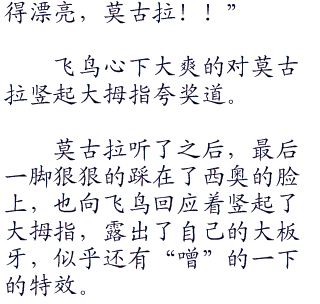 得漂亮，莫古拉！！”
飞鸟心下大爽的对莫古
拉竖起大拇指夸奖道。
莫古拉听了之后，最后
一脚狠狠的踩在了西奥的脸
上，也向飞鸟回应着竖起了
大拇指，露出了自己的大板
牙，似乎还有“噌”的一下
的特效。